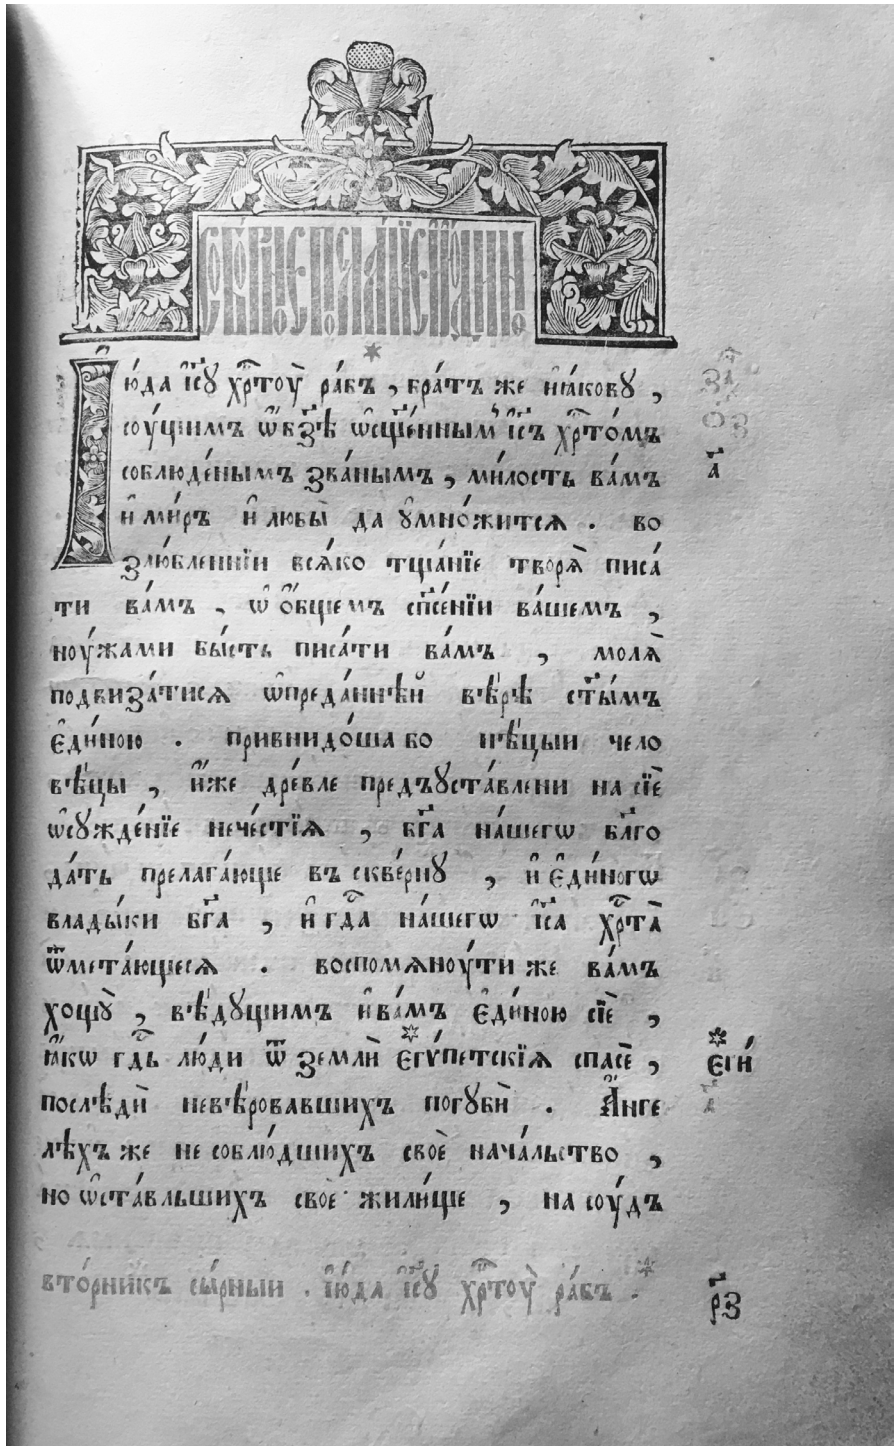 СОБОРНОЕ ПОСЛАНІЕ ІЮДИНО
Ію́да і҆с҃у хрⷭ҇тоу̀ ра́бъ , бра́тъ же и҆ꙗ́кову ,
соу́щимъ ѡ҆ бз҃ѣ ѡ҆сщ҃е́ннымъ і҆с҃ъ хрⷭ҇то́мъ
соблюде́нымъ зва́нымъ , ми́лость ва́мъ
и҆ ми́ръ и҆ любы̀ да ᲂу҆мно́жится . во
злю́бленнїи всѧ́ко тща́нїе творѧ̀ писа́
ти ва́мъ , ѡ҆ ѻ҆́бщемъ сп҃се́нїи ва́шемъ ,
ноу́жами бы́сть писа́ти ва́мъ , молѧ̀
подвиза́тисѧ ѡ҆ преда́ннѣй вѣ́рѣ ст҃ы́мъ
є҆ди́ною . привнидо́ша бо нѣ́цыи чело
вѣ́цы , и҆́же дре́вле предъꙋста́влени на сїѐ
ѡ҆сꙋжде́нїе нече́стїѧ , бг҃а на́шегѡ блг҃о
да́ть прелага́юще въ скве́рнꙋ , и҆ є҆ди́ногѡ
влады́ки бг҃а , и҆ гдⷭ҇а на́шегѡ і҆с҃а хрⷭ҇та̀
ѿмета́ющесѧ . воспомѧноу́ти же ва́мъ
хощꙋ̀ , вѣ́дꙋщимъ и҆ ва́мъ є҆ди́ною сїѐ ,
ꙗ҆́кѡ гдⷭ҇ь лю́ди ѿ землѝ є҆гѵ́петскїѧ спасѐ ,
послѣдѝ невѣ́ровавшихъ погꙋбѝ . А҆́нге
лѣхъ же не соблю́дшихъ своѐ нача́льство ,
но ѡ҆ста́вльшихъ своѐ жили́ще , на соу́дъ
вто́рникъ сы́рныи . і҆ю́да і҆с҃ꙋ хрⷭ҇тоу̀ ра́бъ .
за҃
о҃з
а҃
є҆гѝ
р҃з